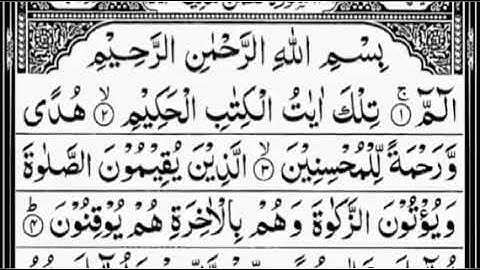 بِسْمِ اللهِ الرَّحْمٰنِ الرَّحِيْمِ
الٓمّٓ ۚ﴿۱﴾ تِلْكَ اٰيٰتُ الْكِتٰبِ الْحَكِيْمِ ۙ﴿۲﴾ هُدًى
وَّرَحْمَةً لِّلْمُحْسِنِيْنَ ۙ﴿۳﴾ الَّذِيْنَ يُقِيْمُوْنَ الصَّلٰوةَ
وَيُؤْتُوْنَ الزَّكٰوةَ وَهُمْ بِالْاٰخِرَةِ هُمْ يُوْقِنُوْنَ ؕ﴿۴﴾